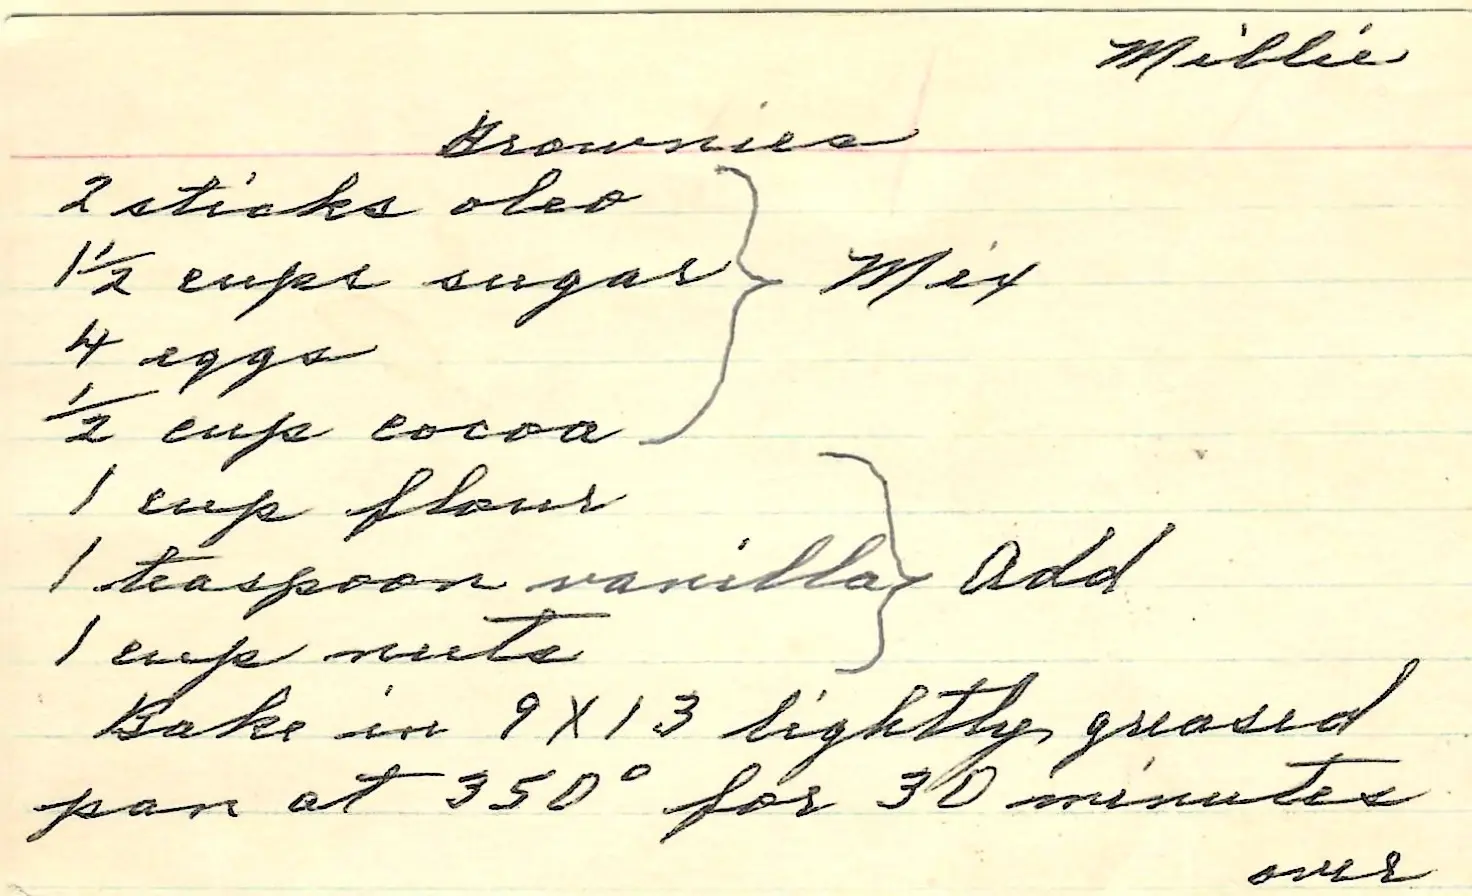 Millie
Brownies
2 sticks oleo
1 1/2 cups sugar
4 eggs
1/2 cup cocoa
Mix
1 cup flour
1 teaspoon vanilla
1 cup nuts
Add
Bake in 9X13 lightly greased
pan at 350° for 30 minutes
over